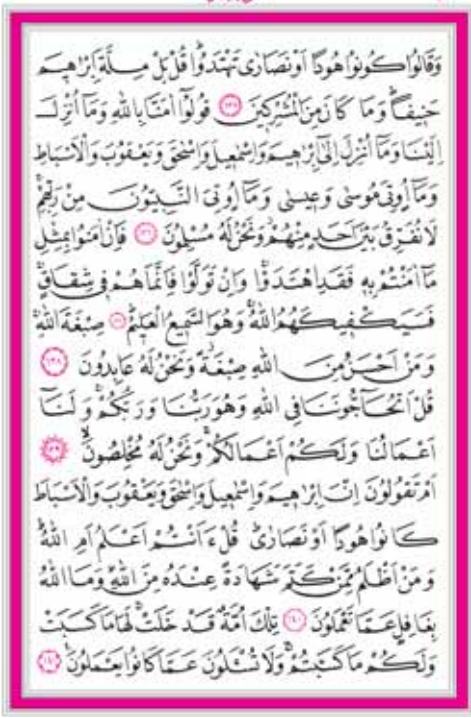 وَقَالُوا كُونُوا هُودًا اَوْ نَصَارٰى تَهْتَدُواۜ قُلْ بَلْ مِلَّةَ اِبْرٰهٖيمَ
حَنٖيفًاۜ وَمَا كَانَ مِنَ الْمُشْرِكٖينَ ﴿١٣٥﴾ قُولُٓوا اٰمَنَّا بِاللّٰهِ وَمَٓا اُنْزِلَ
اِلَيْنَا وَمَٓا اُنْزِلَ اِلٰٓى اِبْرٰهٖيمَ وَاِسْمٰعٖيلَ وَاِسْحٰقَ وَيَعْقُوبَ وَالْاَسْبَاطِ
وَمَٓا اُو۫تِيَ مُوسٰى وَعٖيسٰى وَمَٓا اُو۫تِيَ النَّبِيُّونَ مِنْ رَبِّهِمْۚ
لَا نُفَرِّقُ بَيْنَ اَحَدٍ مِنْهُمْۘ وَنَحْنُ لَهُ مُسْلِمُونَ ﴿١٣٦﴾ فَاِنْ اٰمَنُوا بِمِثْلِ
مَٓا اٰمَنْتُمْ بِهٖ فَقَدِ اهْتَدَوْاۚ وَاِنْ تَوَلَّوْا فَاِنَّمَا هُمْ فٖي شِقَاقٍۚ
فَسَيَكْفٖيكَهُمُ اللّٰهُۚ وَهُوَ السَّمٖيعُ الْعَلٖيمُۜ ﴿١٣٧﴾ صِبْغَةَ اللّٰهِۚ
وَمَنْ اَحْسَنُ مِنَ اللّٰهِ صِبْغَةًۘ وَنَحْنُ لَهُ عَابِدُونَ ﴿١٣٨﴾
قُلْ اَتُحَٓاجُّونَنَا فِي اللّٰهِ وَهُوَ رَبُّنَا وَرَبُّكُمْۚ وَلَنَٓا
اَعْمَالُنَا وَلَكُمْ اَعْمَالُكُمْۚ وَنَحْنُ لَهُ مُخْلِصُونَۙ ﴿١٣٩﴾
اَمْ تَقُولُونَ اِنَّ اِبْرٰهٖيمَ وَاِسْمٰعٖيلَ وَاِسْحٰقَ وَيَعْقُوبَ وَالْاَسْبَاطَ
كَانُوا هُودًا اَوْ نَصَارٰىۜ قُلْ ءَاَنْتُمْ اَعْلَمُ اَمِ اللّٰهُۜ
وَمَنْ اَظْلَمُ مِمَّنْ كَتَمَ شَهَادَةً عِنْدَهُ مِنَ اللّٰهِۜ وَمَا اللّٰهُ
بِغَافِلٍ عَمَّا تَعْمَلُونَ ﴿١٤٠﴾ تِلْكَ اُمَّةٌ قَدْ خَلَتْۚ لَهَا مَا كَسَبَتْ
وَلَكُمْ مَا كَسَبْتُمْۚ وَلَا تُسْـَٔلُونَ عَمَّا كَانُوا يَعْمَلُونَ ﴿١٤١﴾